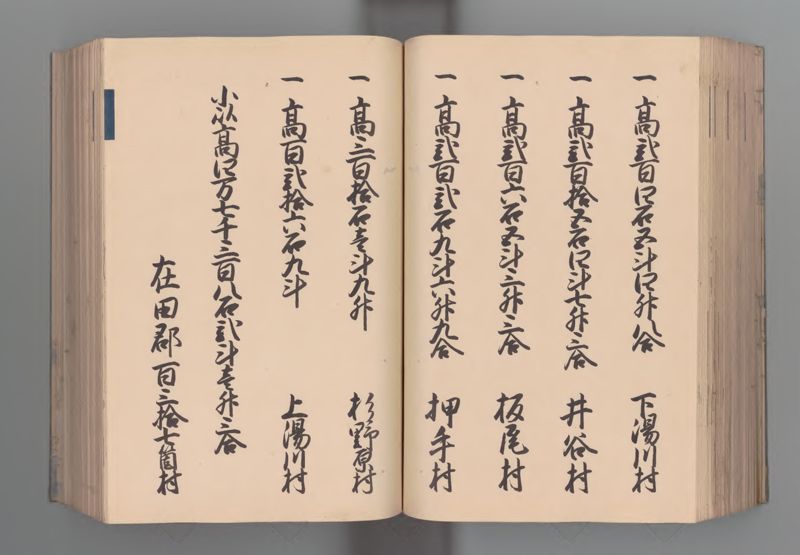 一高弐百四石五斗四升八合 下湯川村
一高弐百拾五石四斗七升三合 井谷村
一高弐百六石五斗三升三合 板尾村
一高弐百弐石九斗六升九合 押手村
一高三百拾石壱斗九升 杉野原村
一高百弐拾六石九斗 上湯川村
小以高四万七千三百八石弐斗壱升三合
在田郡百三拾七箇村